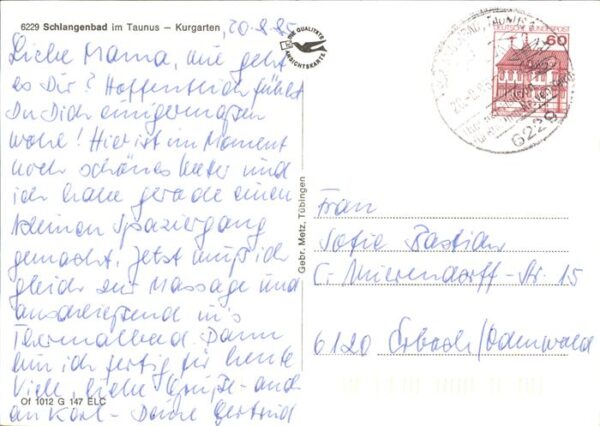 6229 Schlangenbad im Taunus – Kurgarten
20.8.85
Liebe Mama, wie geht
es Dir? Hoffentlich fühlst
Du Dich einigermaßen
wohl! Hier ist im Moment
noch schönes Wetter und
ich habe gerade einen
kleinen Spaziergang
gemacht. Jetzt muß ich
gleich zur Massage und
anschließend in's
Thermalbad. Dann
bin ich fertig für heute
Viele, liebe Grüße – auch
an Karl – Deine Gertrud
Of 1012 G 147 ELC
Gebr. Metz, Tübingen
QUALITÄTS
ANSICHTSKARTE
DEUTSCHE BUNDESPOST
60
6229
Frau
Sofie Bastian
C. Mierendorff-Str. 15
6120 Erbach/Odenwald